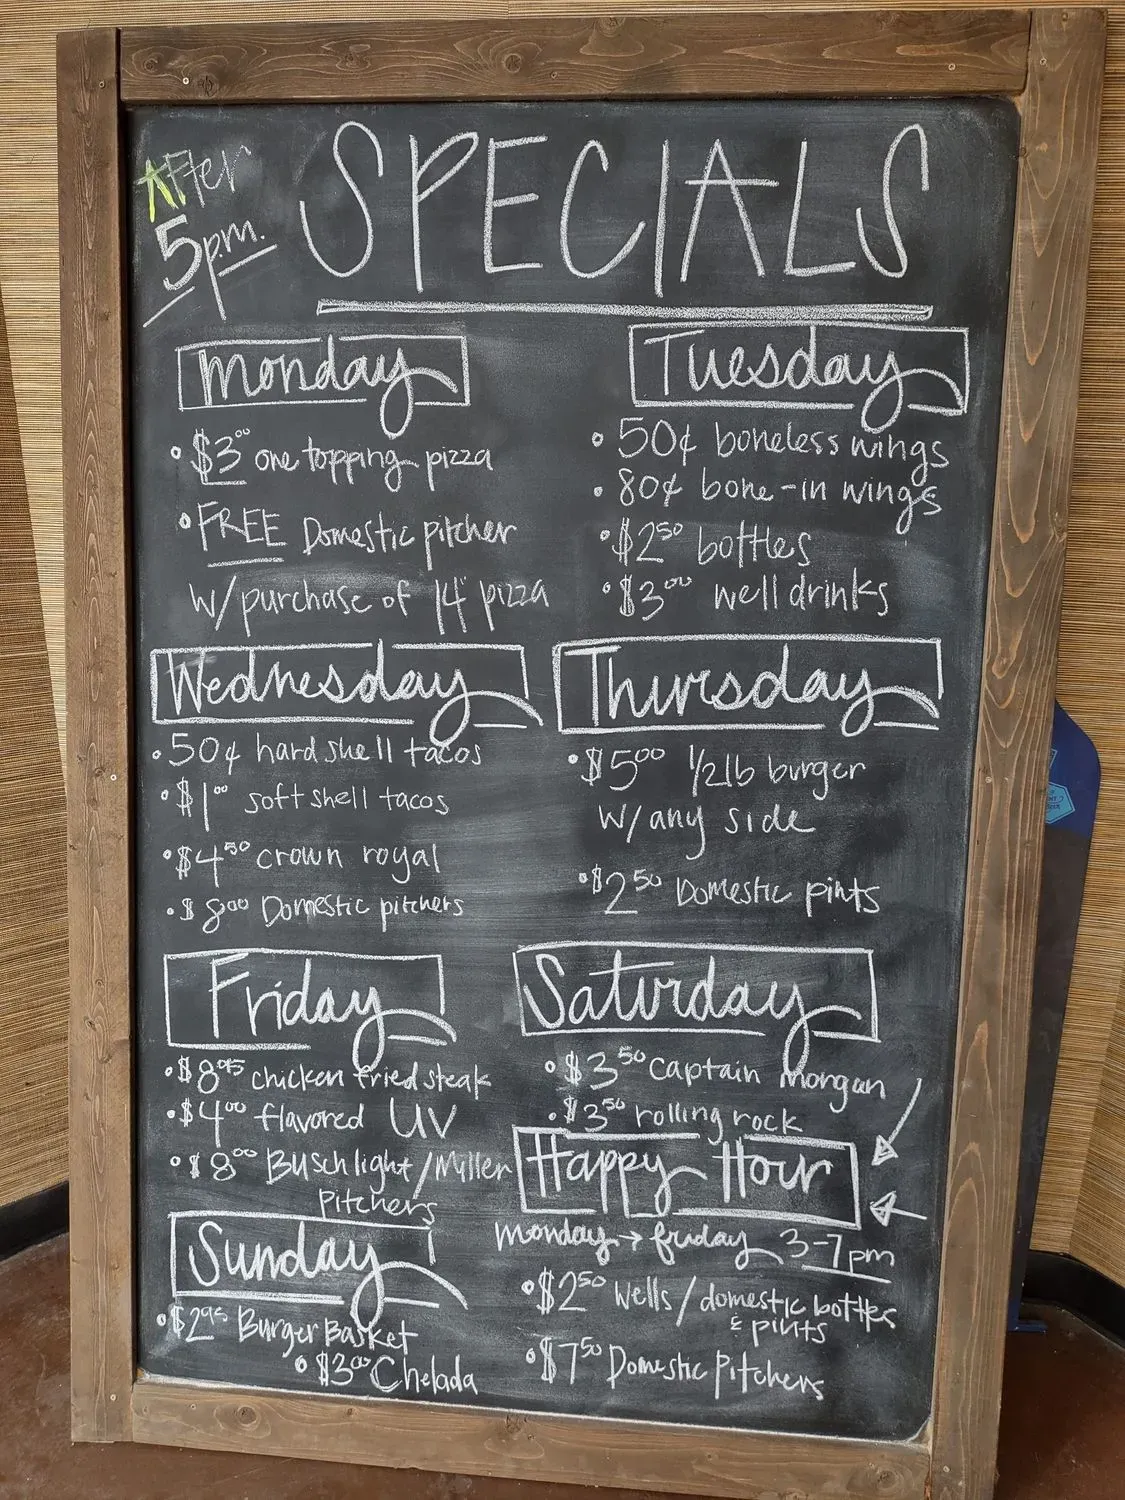 After
5pm.
SPECIALS
Monday
• $3⁰⁰ one topping pizza
• FREE Domestic pitcher
w/purchase of 14" pizza
Tuesday
• 50¢ boneless wings
• 80¢ bone-in wings
• $2⁵⁰ bottles
• $3⁰⁰ well drinks
Wednesday
• 50¢ hard shell tacos
• $1⁰⁰ soft shell tacos
• $4⁵⁰ crown royal
• $8⁰⁰ Domestic pitchers
Thursday
• $5⁰⁰ 1/2lb burger
w/any side
• $2⁵⁰ Domestic pints
Friday
• $8⁹⁵ chicken fried steak
• $4⁰⁰ flavored UV
• $8⁰⁰ Busch light/Miller
Pitchers
Saturday
• $3⁵⁰ Captain Morgan
• $3⁵⁰ rolling rock
Sunday
• $2⁹⁵ Burger Basket
• $3⁰⁰ Chelada
Happy Hour
Monday → friday 3-7pm
• $2⁵⁰ Wells/domestic bottles
& pints
• $7⁵⁰ Domestic Pitchers